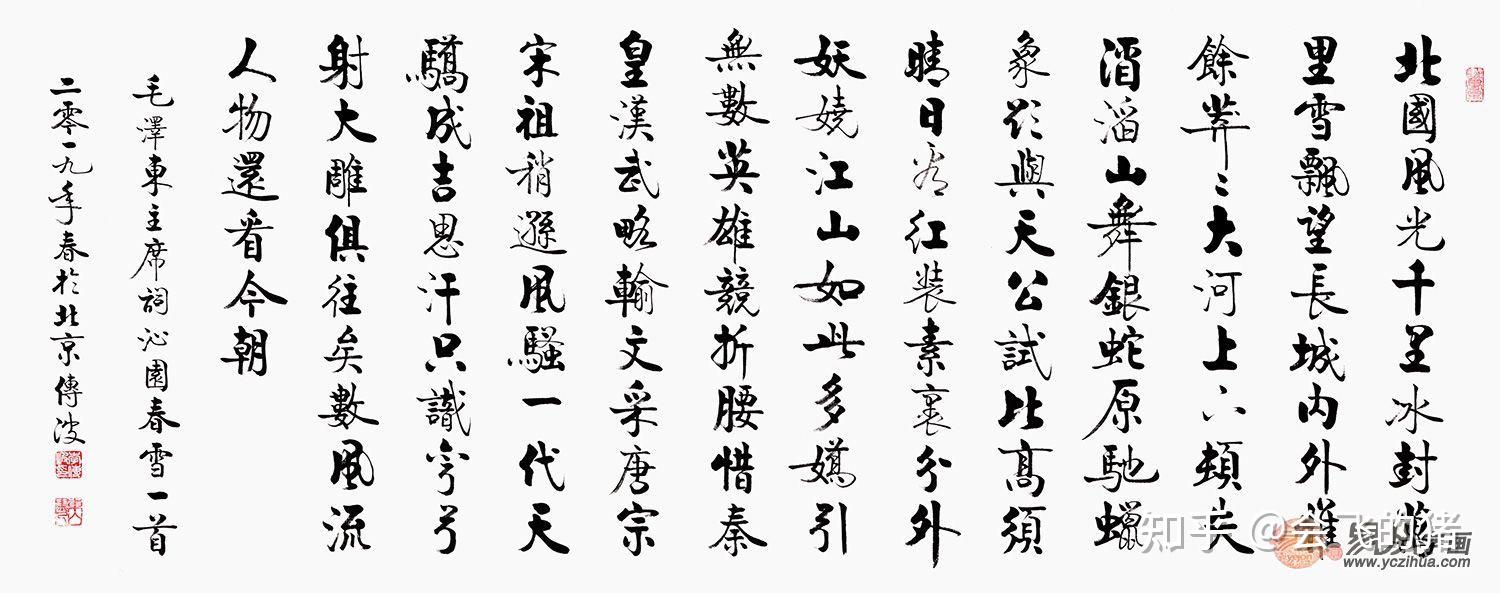 北國風光千里冰封萬
里雪飄望長城内外惟
餘莽〻大河上下頓失
滔滔山舞銀蛇原馳蠟
象欲與天公試比高須
晴日看紅裝素裹分外
妖嬈江山如此多嬌引
無數英雄競折腰惜秦
皇漢武略輸文采唐宗
宋祖稍遜風騷一代天
驕成吉思汗只識彎弓
射大雕俱往矣數風流
人物還看今朝
毛澤東主席詞沁園春雪一首
二零一九年春於北京傳波
知乎 @会飞的猪
www.yczihua.com